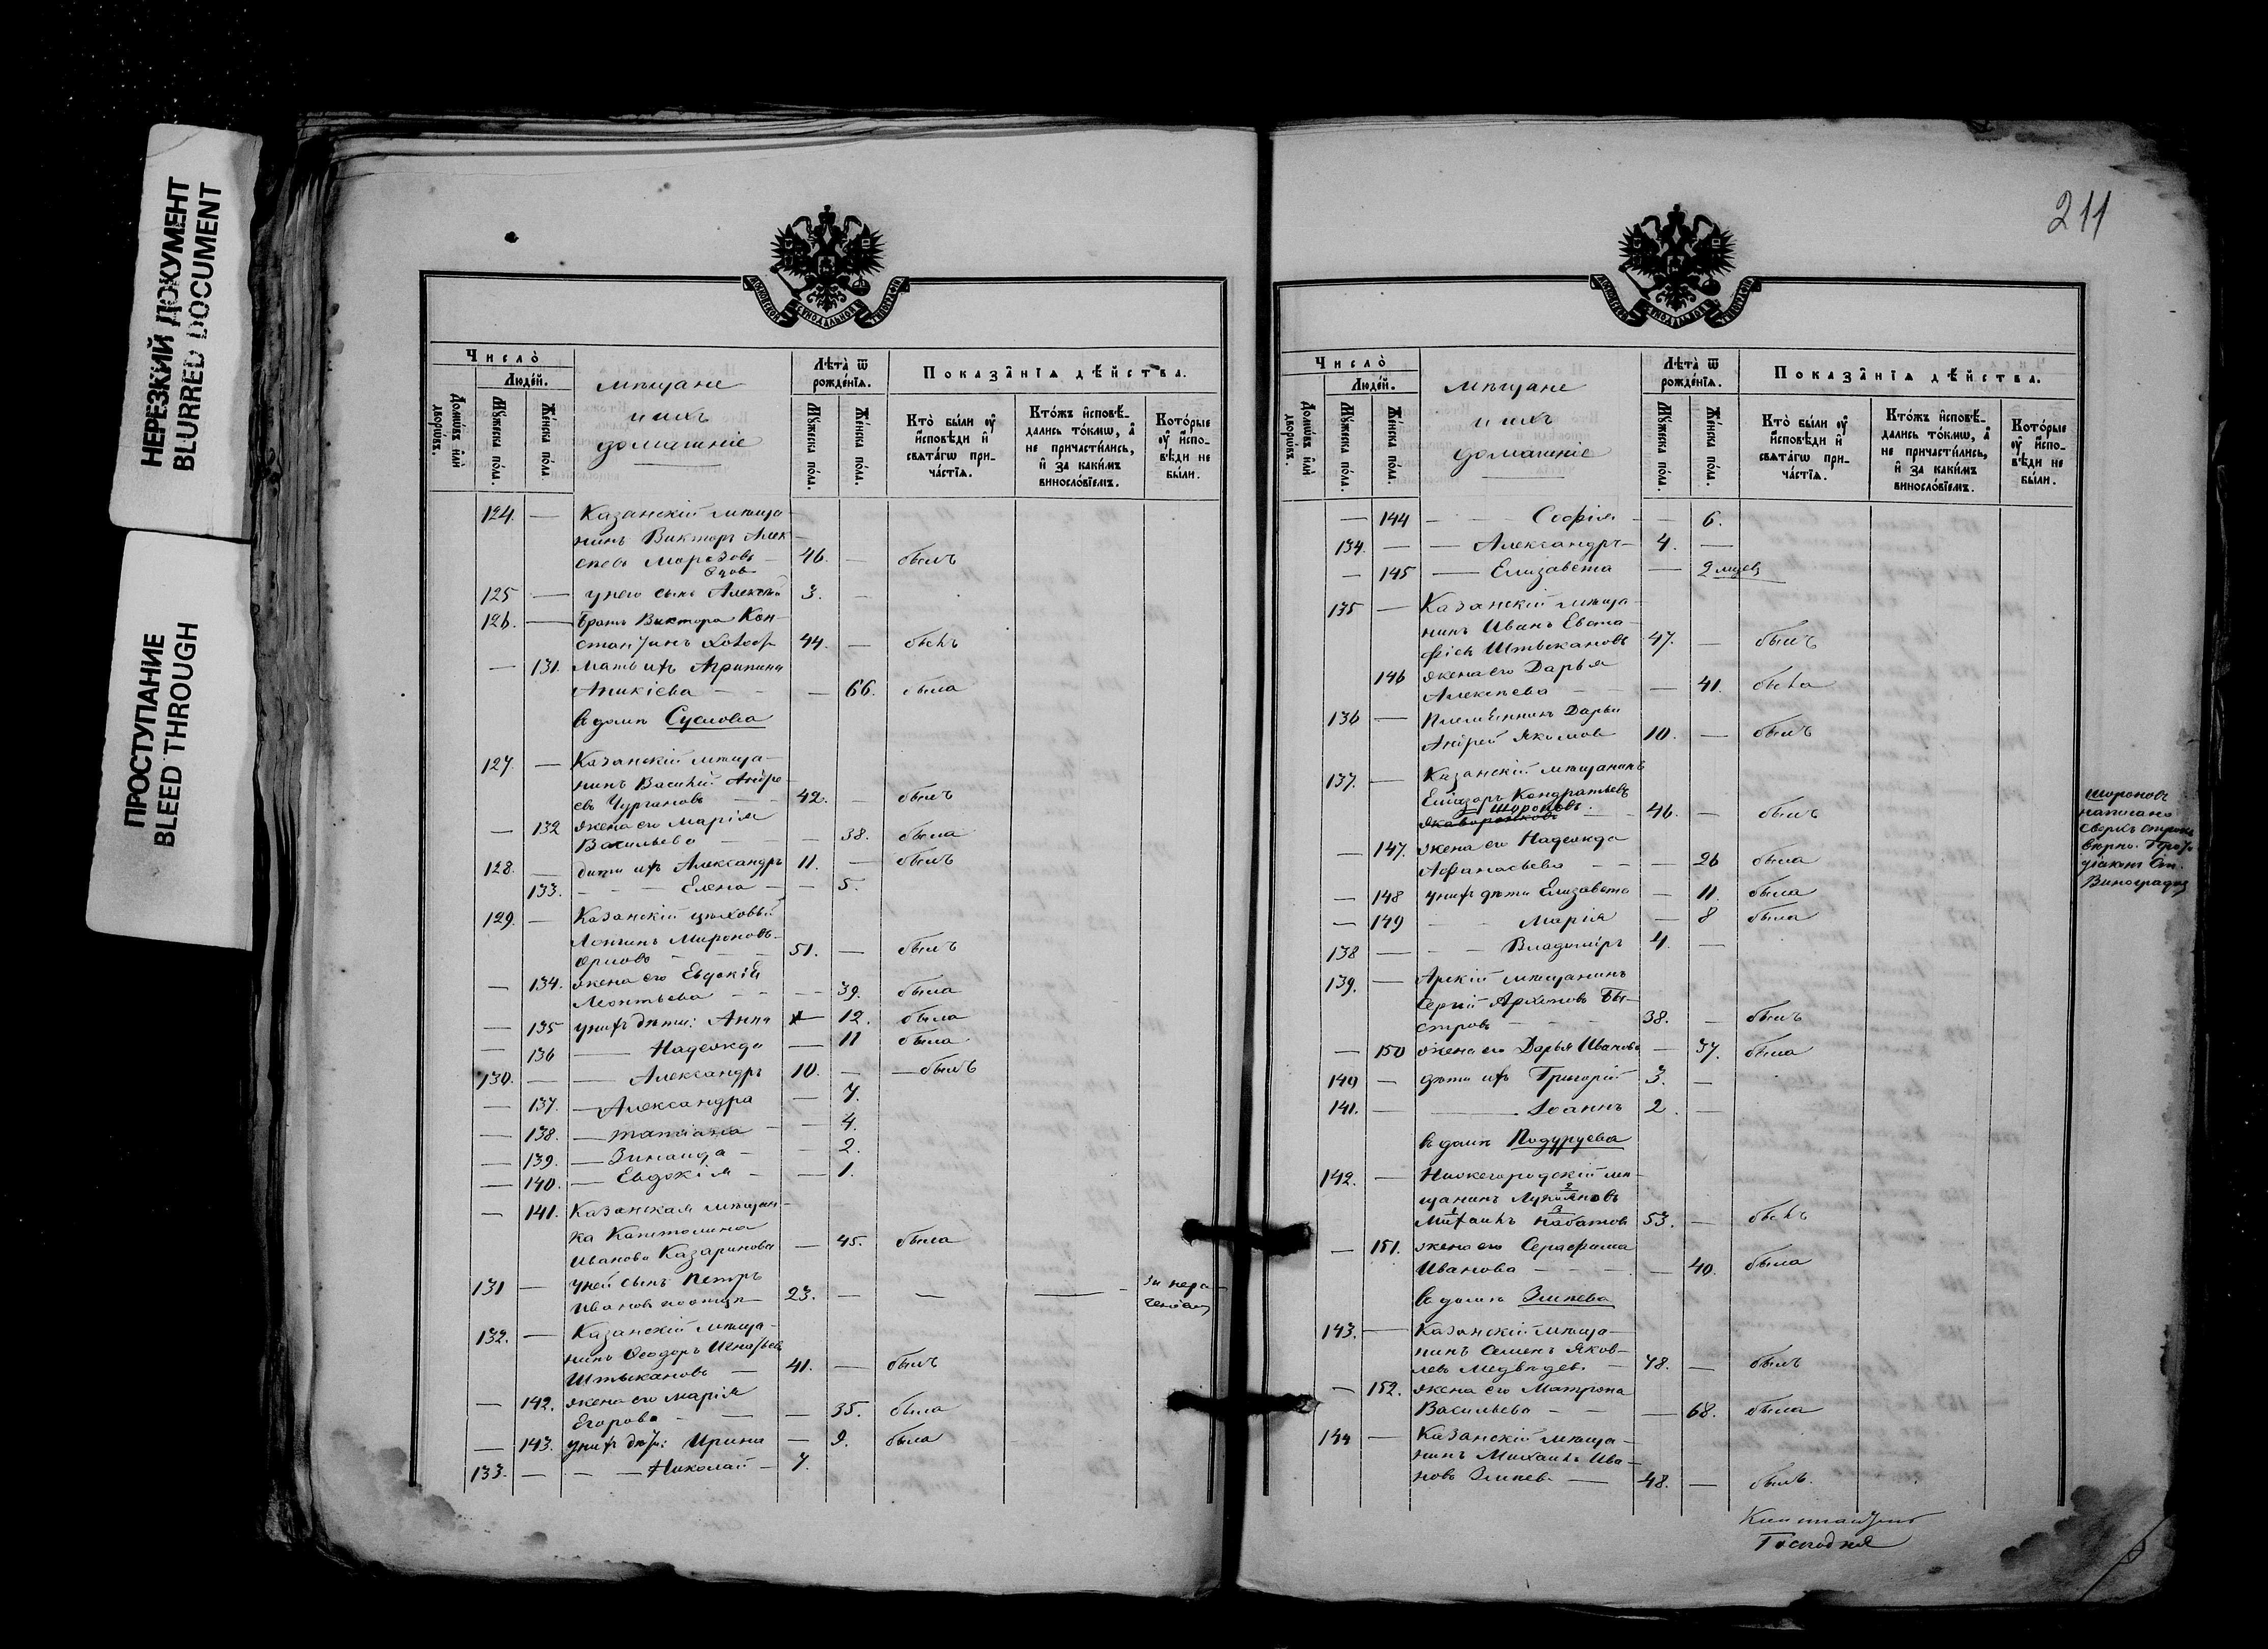 НЕРЕЗКИЙ ДОКУМЕНТ
BLURRED DOCUMENT
ПРОСТУПАНИЕ
BLEED THROUGH
211
МОСКОВСКОЙ СѴНОДАЛЬНОЙ ТѴПОГРАФІИ
Число̀
Люде́й.
Домѡ́въ и҆лѝ дворѡ́въ.
Мꙋ́жеска по́ла.
Же́нска по́ла.
мѣщане
и ихъ
домашніе
Лѣта̀ ѿ рожде́нїѧ.
Мꙋ́жеска по́ла.
Же́нска по́ла.
Показа̑нїѧ дѣ́йства.
Кто̀ бы́ли ᲂу҆ и҆сповѣди и҆ свѧта́гѡ при-ча́стїѧ.
Кто́жъ и҆сповѣ́-дались то́кмѡ, а҆ не причасти́лись, и҆ за каки́мъ виносло́вїемъ.
Кото́рые ᲂу҆ и҆спо-вѣди не бы́ли.
124. — Казанскій мѣща-
нинъ Викторъ Алек-
сѣевъ Морозовъ 46. — былъ
вдов
125 — у него сынъ Алексѣй 3. —
126. — Братъ Виктора Кон-
стантинъ холост 44. — былъ
— 131. Мать ихъ Агрипина
Аникіева — 66. была
в домѣ Суслова
127. — Казанскій мѣща-
нинъ Василій Андре-
евъ Чургановъ 42. — былъ
— 132 жена его Марія
Васильева — 38. была
128. — дѣти ихъ Александръ 11. — былъ
133. — Елена — 5.
129. — Казанскій цѣховый
Логинъ Мироновъ
Орлово 51. — былъ
— 134. жена его Евдокія
Леонтьева — 39. была
— 135 у нихъ дѣти: Анна — 12. была
— 136 — Надежда — 11 была
130. — Александръ 10. — былъ
— 137. — Александра — 7.
— 138. — Татіана — 4.
— 139. — Зинаида — 2.
— 140. — Евдокія — 1.
— 141. Казанская мѣщан-
ка Капитолина
Иванова Казаринова — 45. была
131 — у ней сынъ Петръ
Ивановъ 23. — — — За нера-
132. — Казанскій мѣща-
нинъ Ѳеодоръ Игнатьев
Штыкановъ 41. — былъ
— 142. жена его Марія
Егорова — 35. была
— 143. у нихъ дѣти: Ирина — 9. была
133. — Николай 7.
Число̀
Люде́й.
Домѡ́въ и҆лѝ дворѡ́въ.
Мꙋ́жеска по́ла.
Же́нска по́ла.
мѣщане
и ихъ
домашніе
Лѣта̀ ѿ рожде́нїѧ.
Мꙋ́жеска по́ла.
Же́нска по́ла.
Показа̑нїѧ дѣ́йства.
Кто̀ бы́ли ᲂу҆ и҆сповѣди и҆ свѧта́гѡ при-ча́стїѧ.
Кто́жъ и҆сповѣ́-дались то́кмѡ, а҆ не причасти́лись, и҆ за каки́мъ виносло́вїемъ.
Кото́рые ᲂу҆ и҆спо-вѣди не бы́ли.
— 144 — Софія — 6.
134. — Александръ 4. —
— 145 — Елизавета — 2 мцев
135 — Казанскій мѣща-
нинъ Иванъ Евста-
фіевъ Штыкановъ 47. — былъ
146 жена его Дарья
Алексѣева — 41. была
136 — Племянникъ Дарьи
Андрей Якимовъ 10. — былъ
137. — Казанскій мѣщанинъ
Елизаръ Кондратьевъ
Шороновъ 46. — былъ
— 147. жена его Надежда
Афанасьева — 26 была
— 148 у нихъ дѣти Елизавета — 11. была
— 149 — Марія — 8 была
138 — Владиміръ 4. —
139. — Арскій мѣщанинъ
Сергій Архиповъ Бы-
стровъ 38. — былъ
— 150 жена его Дарья Иванова — 37. была
140 — дѣти ихъ Григорій 3. —
141. — Іоаннъ 2. —
в домѣ Подуруева
142. — Нижегородскій мѣ-
щанинъ Лукояновъ
Михаилъ Набатов 53. — былъ
— 151. жена его Серафима
Иванова — 40. была
в домѣ Змиева
143. — Казанскій мѣща-
нинъ Семенъ Яков-
левъ Медвѣдевъ 78. — былъ
— 152. жена его Матрона
Васильева — 68. была
144 — Казанскій мѣща-
нинъ Михаилъ Ива-
новъ Змиевъ 48. — былъ.
Шороновъ
написано
сверхъ строки
вѣрно.
діаконъ
Виноградов
Господня